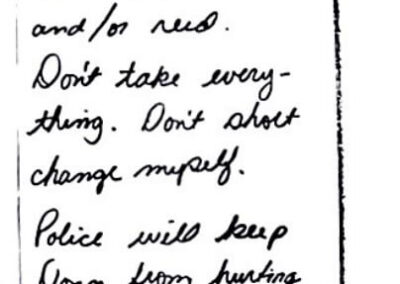 and/or
Don't take every-
thing. Don't short
change myself.
Police will keep
from hurting